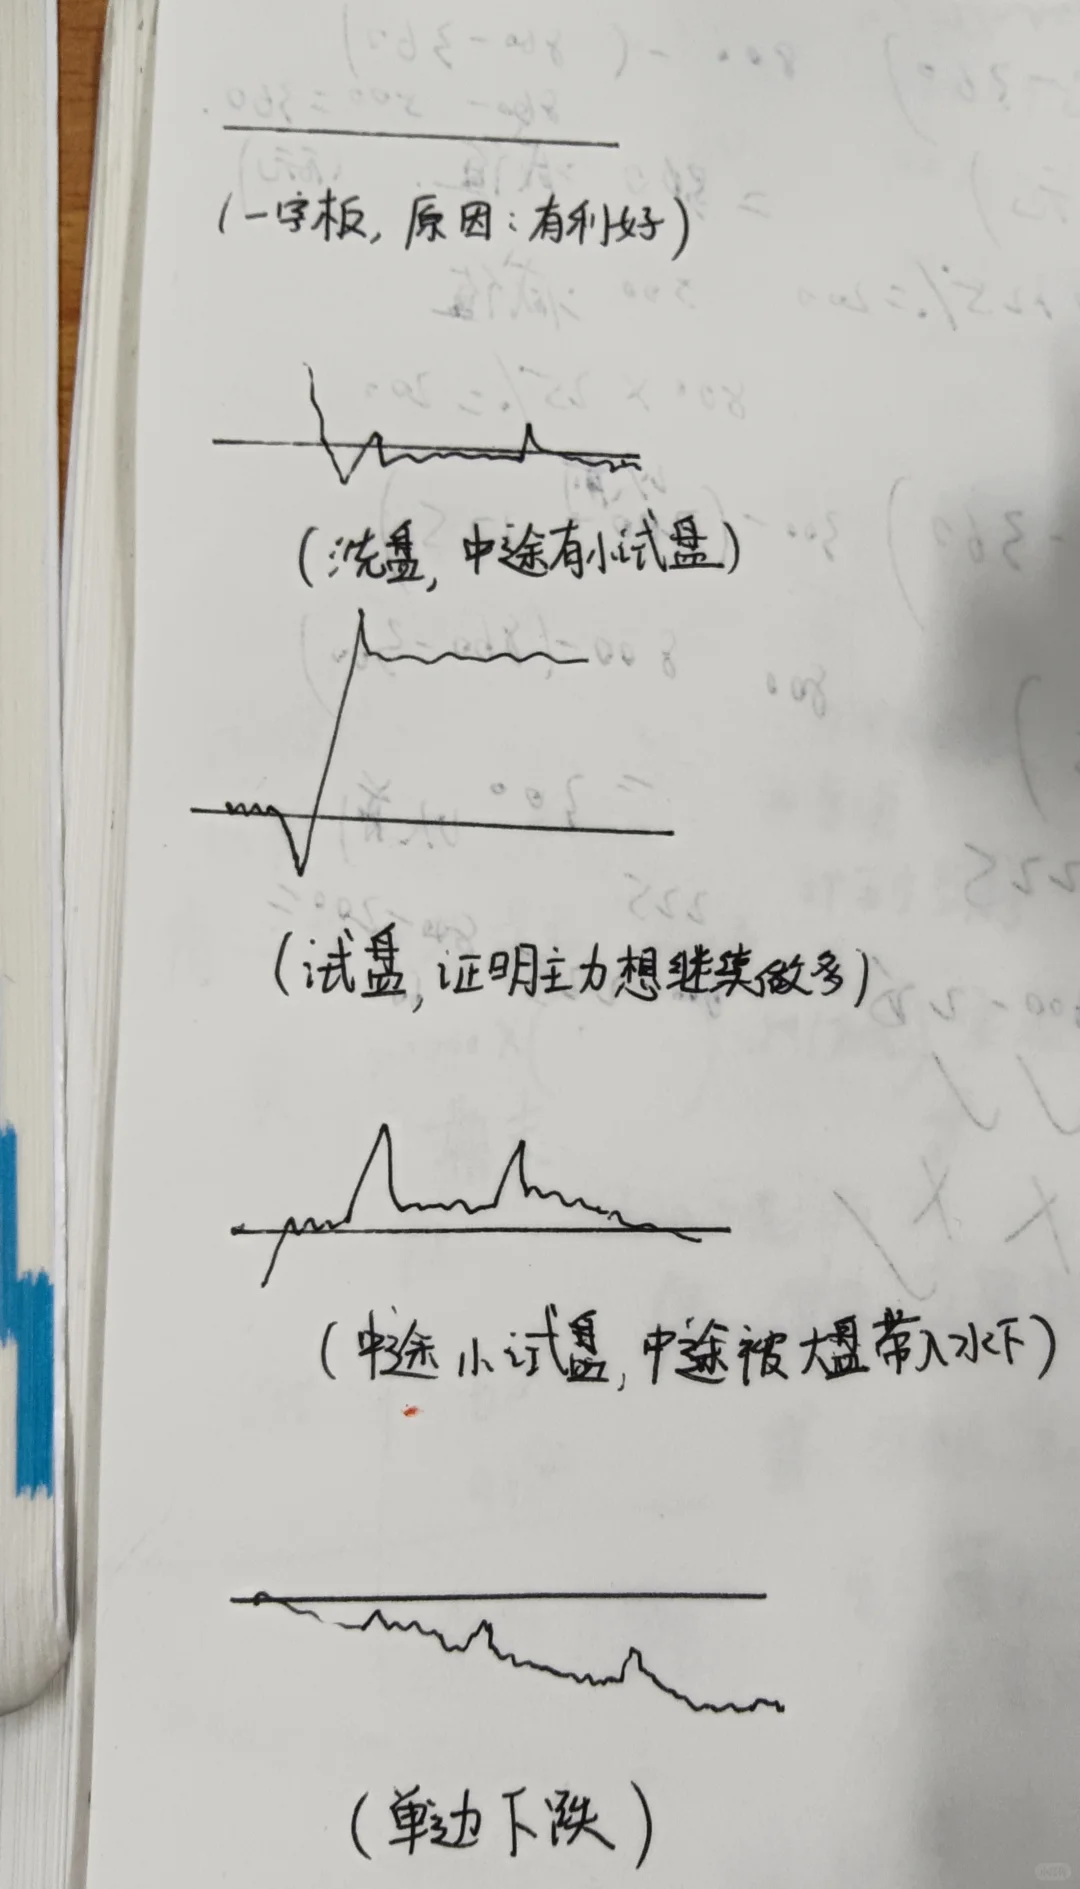 (一字板, 原因:有利好)
(洗盘, 中途有小试盘)
(试盘, 证明主力想继续做多)
(中途小试盘, 中途被大盘带入水下)
(单边下跌)